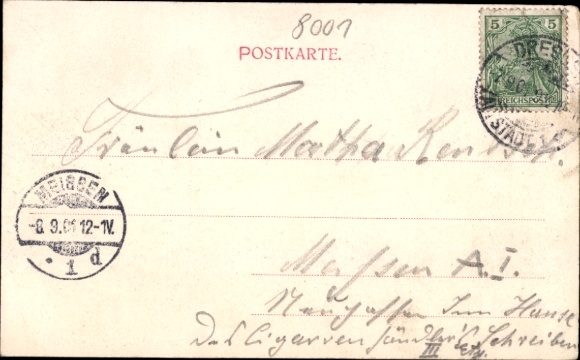 8001
POSTKARTE.
5 5
REICHSPOST
DRES
ALTSTADT
Fräulein Martha
MEISSEN
-8.9.01 12-1V.
* 1 d
Meissen A. I.
Neugasse Im Hause
Des Cigarren händler's Schreiber
III Etg